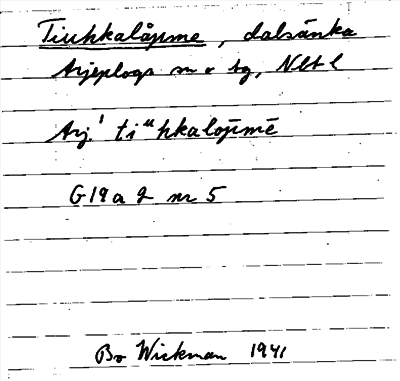 Tiuhkalåpme, dalsänka
Arjeplogs sn o tg, Nbt l
Arj. ti"hkalopmē
G 19 a 2 nr 5
Bo Wickman 1941